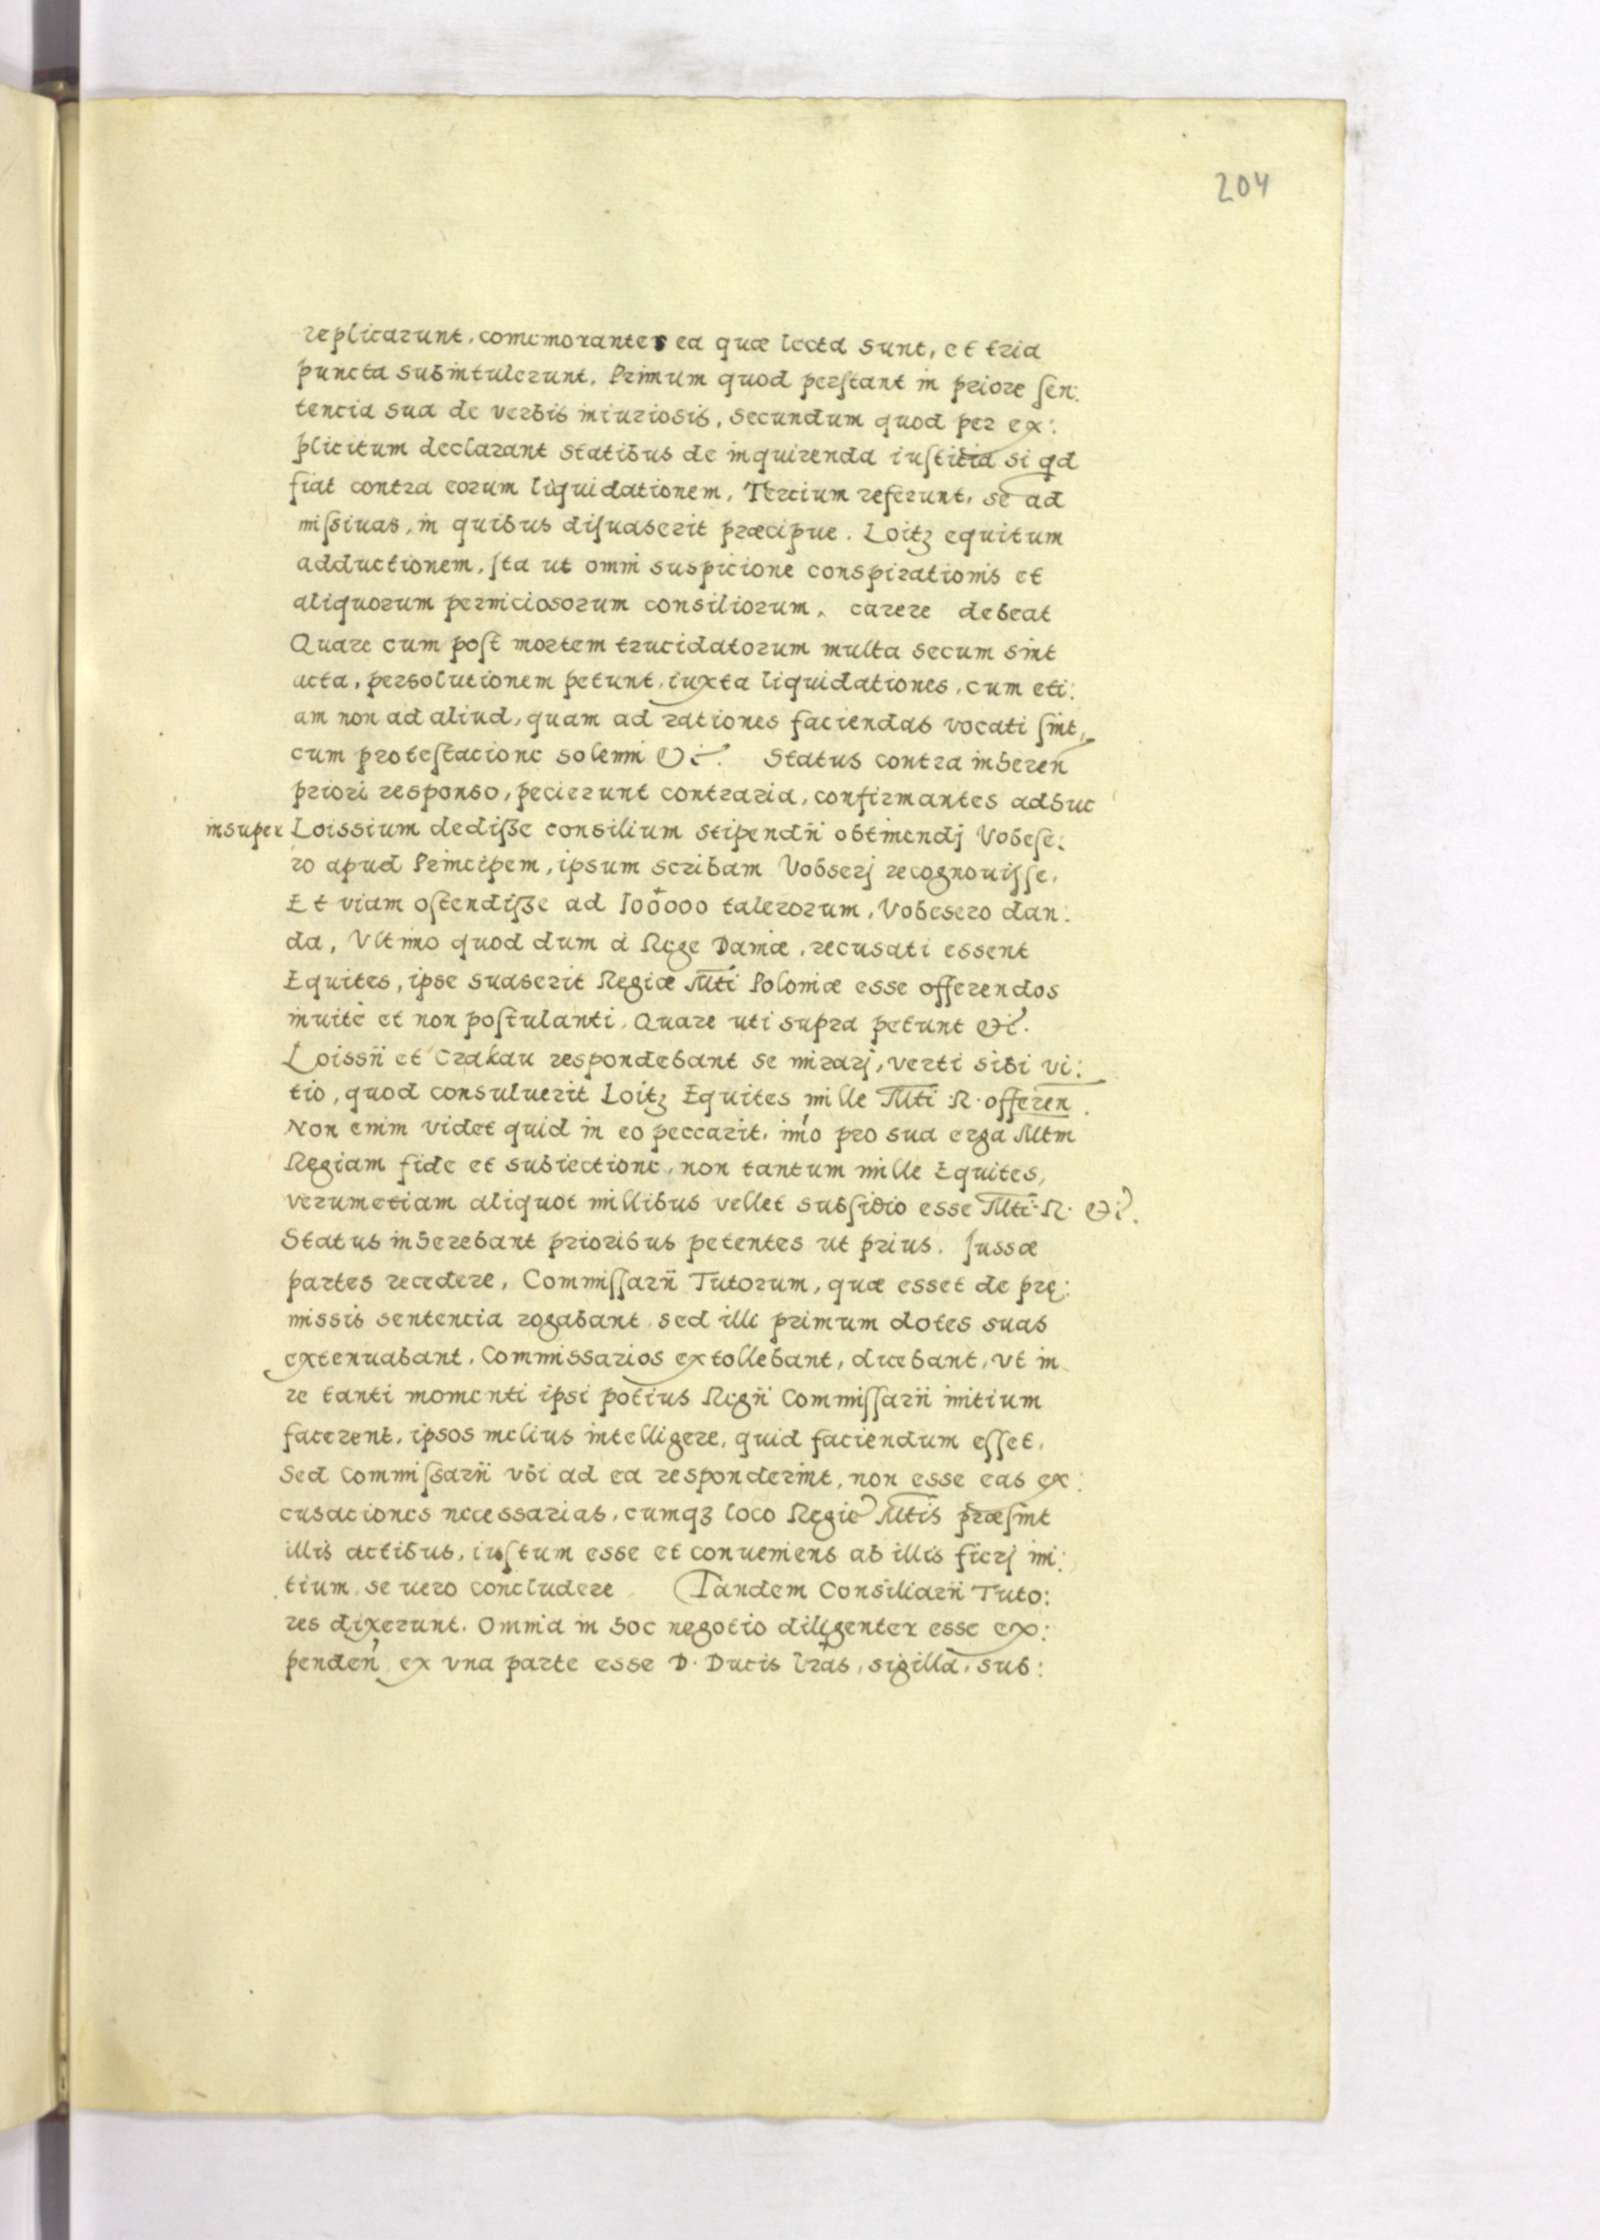 204
replicarunt, comemorantes ea quæ lecta sunt, et tria
puncta subintulerunt. Primum quod perſtant in priore ſen:
tencia sua de verbis iniuriosis, secundum quod per ex:
plicitum declarant statibus de inquirenda iuſticia si qd
fiat contra eorum liquidationem, Tercium referunt, se ad
miſsiuas, in quibus diſuaserit præcipue. Loitz equitum
adductionem, Ita ut omni suspicione conspirationis et
aliquorum perniciosorum consiliorum, carere debeat
Quare cum poſt mortem trucidatorum multa secum sint
acta, persolutionem petunt, iuxta liquidationes, cum eti:
am non ad aliud, quam ad rationes faciendas vocati ſint,
cum proteſtacione solenni &c. Status contra inheren
priori responso, pecierunt contraria, confirmantes adhuc
insuper Loissium dediſse consilium stipendii obtinendj Vobeſe:
ro apud Principem, ipsum scribam Vobserj recognouiſſe,
Et viam oſtendiſse ad 100000 talerorum, Vobesero dan:
da, Vltimo quod dum à Rege Daniæ, recusati essent
Equites, ipse suaserit Regiæ Mti Poloniæ esse offerendos
inuitè et non poſtulanti. Quare uti supra petunt &c.
Loissii et Crakau respondebant se mirarj, verti sibi vi:
tio, quod consuluerit Loitz Equites mille Mti R. offeren.
Non enim videt quid in eo peccarit, imo pro sua erga Mtm
Regiam fide et subiectione, non tantum mille Equites,
verumetiam aliquot millibus vellet subſidio esse Mti R. &c.
Status inherebant prioribus petentes ut prius. Jussæ
partes recedere, Commiſſarii Tutorum, quæ esset de prę:
missis sentencia rogabant, sed illi primum dotes suas
extenuabant, Commissarios extollebant, dicebant, vt in
re tanti momenti ipsi potius Regii Commiſſarii initium
facerent, ipsos melius intelligere, quid faciendum eſſet,
Sed Commiſsarii vbi ad ea responderint, non esse eas ex:
cusaciones necessarias, cumqȝ loco Regie Mtis præſint
illis actibus, iuſtum esse et conueniens ab illis fierj ini:
tium, se uero concludere Tandem Consiliarii Tuto:
res dixerunt. Omnia in hoc negotio diligenter esse ex:
penden, ex vna parte esse D. Ducis lras, sigilla, sub: